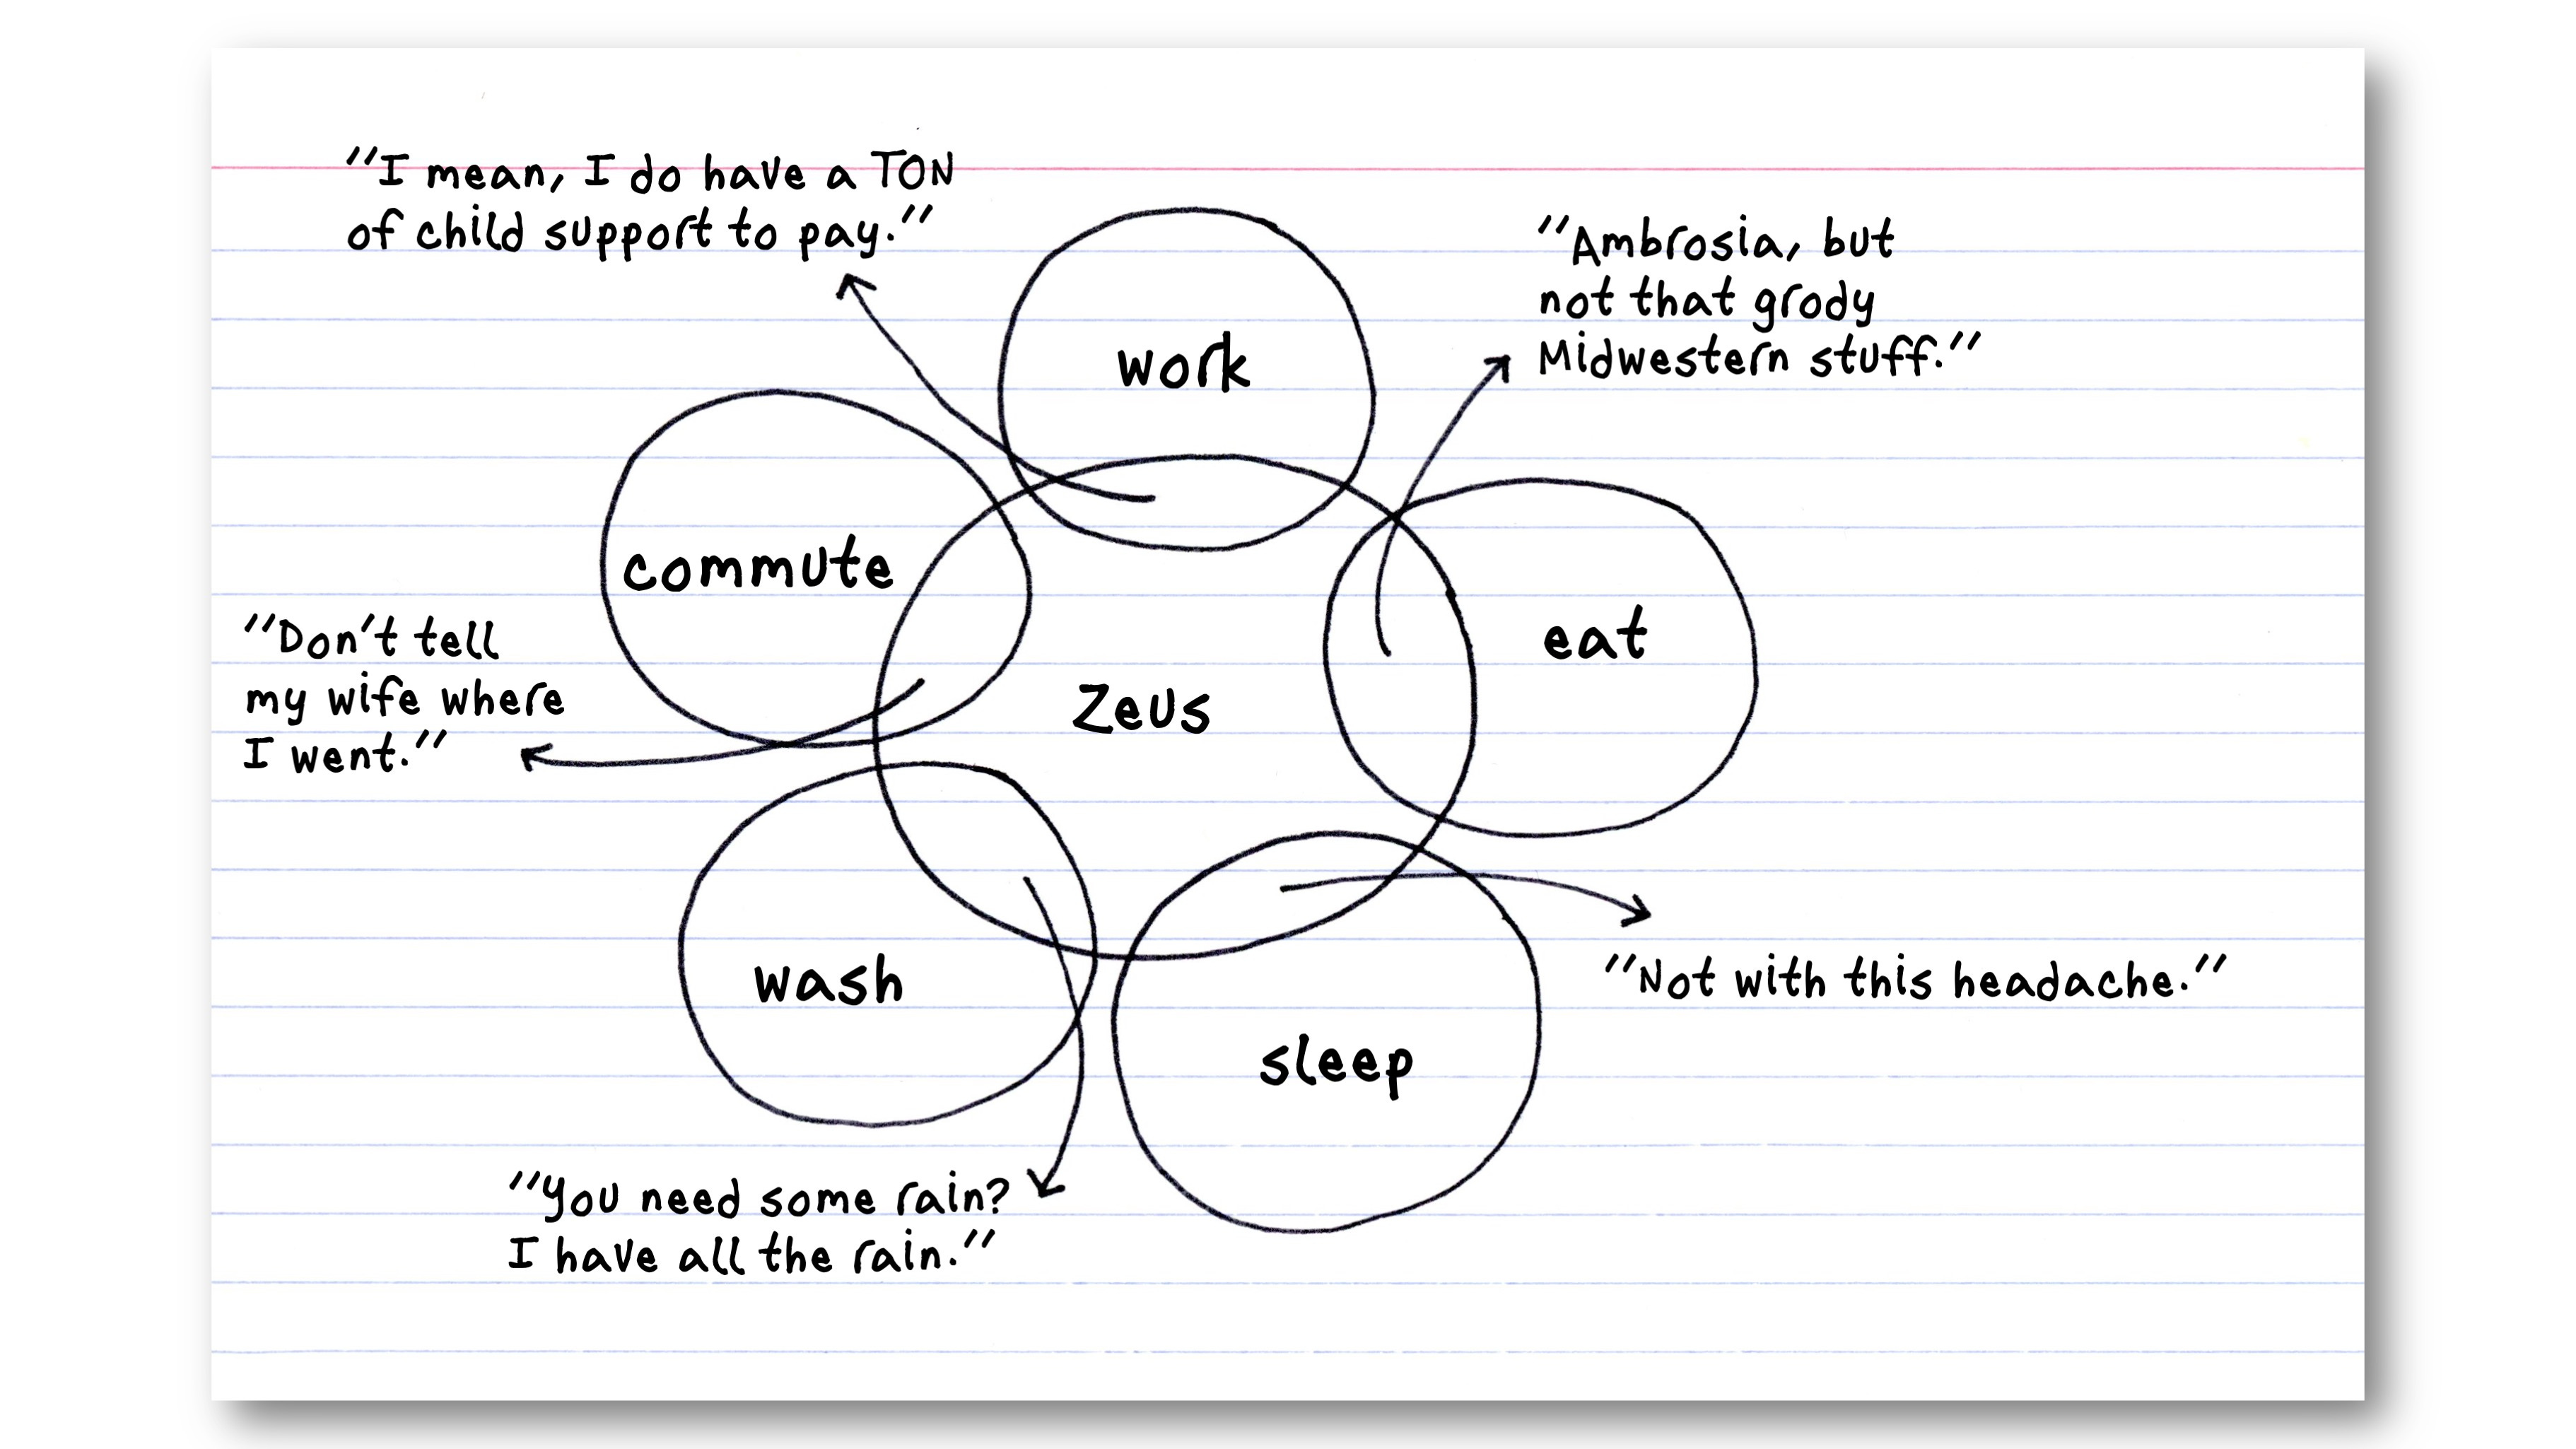 "I mean, I do have a TON
of child support to pay."
"Ambrosia, but
not that grody
Midwestern stuff."
work
commute
eat
"Don't tell
my wife where
I went."
Zeus
wash
sleep
"Not with this headache."
"You need some rain?
I have all the rain."